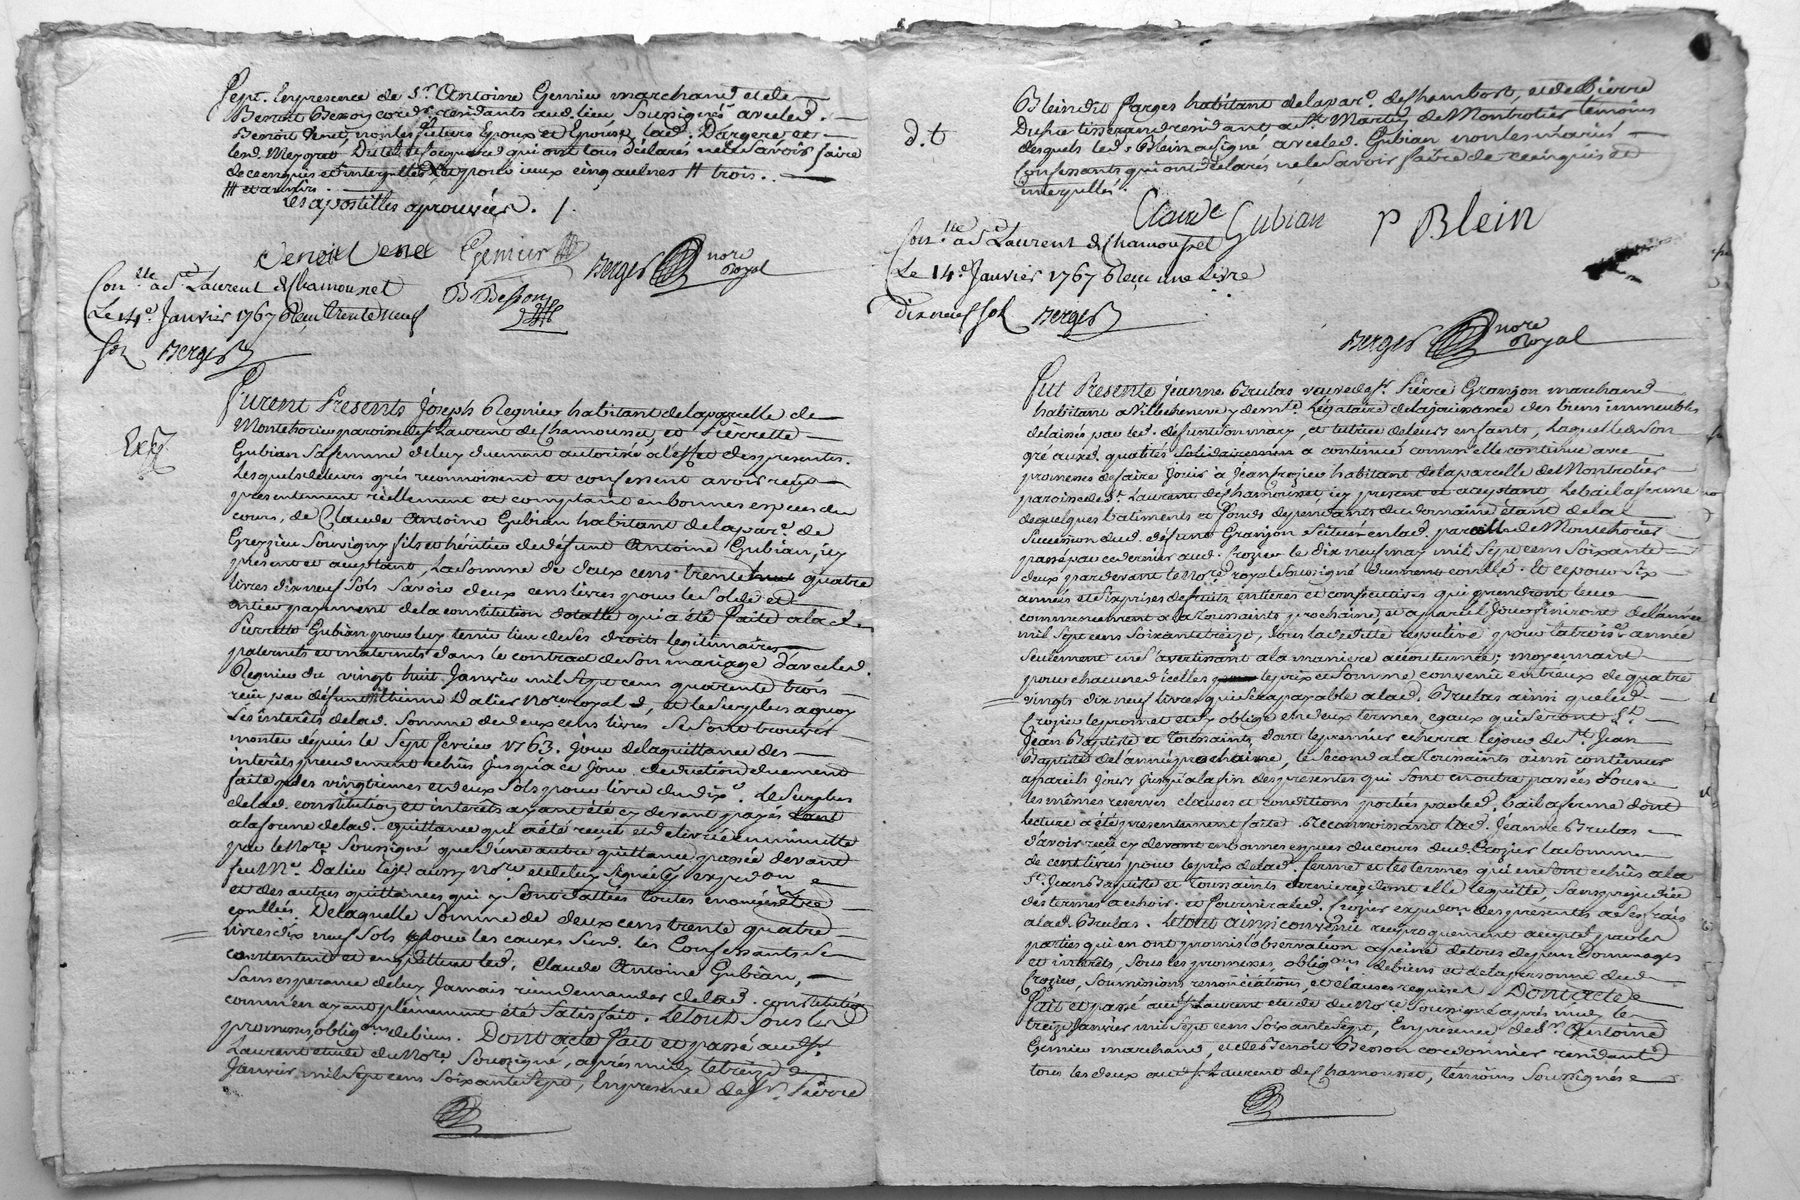 Sept. En presence de Sr. Antoine Gemier marchand et de
Benoit Besson cordr. residants aud. lieu Soussignés avec led.
Benoit Venet, non les futurs Epoux et Epouse, lad. Dargere et
led. Meygrat qui ont tous déclarés ne le Savoir faire
de ce enquis et interpellés
Les apostilles aprouvées. /.
Benoit Venet Gemier Berger nore Royal
Conlle. a St. Laurent de Chamousset
Le 14e. Janvier 1767 Reçu trente neuf
sols Berger
B Besson
Furent Presents Joseph Regnier habitant de la parcelle de
Montrotier paroisse de St. Laurent de Chamousset, et Pierrette
Gubian Sa femme de luy duement autorisée a l'effet des presentes.
Lesquels de leurs grés reconnoissent et confessent avoir reçu
presentement reellement et comptant en bonnes especes du
cours, de Claude Antoine Gubian habitant de la par. de
Grezieu Souvigny fils et héritier de défunt Antoine Gubian, icy
present et aceptant, La Somme de deux cens trente quatre
livres dix neuf Sols Savoir deux cens livres pour le Solde et
entier payement de la constitution dotalle qui a été faite a lad.
Pierrette Gubian pour luy tenir lieu de Ses droits legitimaires
paternels et maternels dans le contract de Son mariage d'avec led.
Regnier du vingt huit Janvier mil Sept cens quarente trois
reçu par défunt Mtre Etienne Dalier Nore royal, et le Surplus a quoy
Les intérêts de lad. Somme de deux cens livres Se Sont trouvés
monter depuis le Sept fevrier 1763. Jour de la quittance des
interêts precedement echus Jusqu'a ce Jour, deduction duement
faite des vingtiemes et deux Sols pour livre du dixe. Le Surplus
de lad. constitution et interêts ayant été cy devant payés tant
a la forme de lad. quittance qui a été reçue et delivrée en minutte
par le Nore Soussigné que d'une autre quittance passée devant
feu Me. Dalier aussy Nore
et des autres quittances qui y Sont dattées toutes
De laquelle Somme de deux cens trente quatre
livres dix neuf Sols pour les causes Susd. les Confessants Se
contentent et en quittent led. Claude Antoine Gubian,
Sans esperance de luy Jamais rien demander de lad. constitution
comm'en ayant pleinement été Satisfait. Le tout Sous les
promesses, obligons de biens. Dont acte fait et passé aud. St.
Laurent etude du Nore Soussigné, après midy le treize
Janvier mil Sept cens Soixante Sept, En presence de Sr. Pierre
d. t
Blein dit Farges habitant de la par. de Chambost, et de Pierre
tisserand residant a St. Martin de Montrotier temoins
desquels led. Blein a signé avec led. Gubian non les mariés
Confessants qui ont déclarés ne le Savoir faire de ce enquis et
interpellés.
Claude Gubian P Blein
Conlle. a St Laurent de Chamousset
Le 14e. Janvier 1767 Reçu une Livre
Dix neuf sols Berger
Berger nore Royal
Fut Presente Jeanne Brulas veuve de Sr. Pierre Granjon marchand
habitant a Villecheneve, Légataire de la jouissance des biens immeubles
delaissés par led. défunt Son mary, et tutrice de leurs enfants, Laquelle de Son
gré auxd. qualités Solidairement a continué comm'elle continue avec
promesses de faire Jouir à Jean Crozier habitant de la parcelle de Montrotier
paroisse de St. Laurent de Chamousset icy present et aceptant Le bail a ferme
de quelques batiments et fonds dependants du domaine étant de la
Succession dud. défunt Granjon Scitués en lad. parcelle de Montrotier
passé par ce dernier aud. Crozier le dix neuf may mil Sept cens Soixante
deux par devant le Nore royal Soussigné duement conllé. Et ce pour Six
années et Six prises de fruits entieres et consecutives qui prendront leur
commencement a la Toussaints prochaine, et a pareil Jour finiront de l'année
mil Sept cens Soixante treize, Sous la dedite respective pour la troise. année
Seulement en S'avertissant a la maniere acoutumée; moyennant
pour chacune d'icelles le prix et Somme convenüe entr'eux de quatre
vingts dix neuf livres qui Sera payable a lad. Brulas ainsi que led.
Crozier le promet et S'y oblige en deux termes egaux qui Seront St.
Jean Baptiste et Toussaints, dont le premier echerra le jour de St. Jean
Baptiste de l'année prochaine, le Second a la Toussaints ainsi continuer
a pareils Jours Jusqu'a la fin des presentes qui Sont en outre passées Sous
les mêmes reserves clauses et conditions portées par led. bail a ferme dont
lecture a été presentement faite. Reconnoissant lad. Jeanne Brulas
d'avoir reçu cy devant en bonnes especes du cours dud. Crozier la Somme
de cent livres pour le prix de lad. ferme et les termes qui en Sont echus a la
St. Jean Baptiste et Toussaints dernieres dont elle le quitte, Sans prejudice
des termes a echoir. et fournira led. Crozier expedon. des presentes a Ses frais
a lad. Brulas. Le tout ainsi convenü reciproquement accepté par les
parties qui en ont promis l'observation a peine de tous depens dommages
et interêts, Sous les promesses, obligons de biens et de la personne dud.
Crozier, Soumissions renonciations et clauses requises. Dont acte
Fait et passé aud. St. Laurent etude du Nore Soussigné après midy le
treize Janvier mil Sept cens Soixante Sept, En presence de Sr. Antoine
Gemier marchand, et de Benoit Besson cordonnier residants
tous les deux aud. St. Laurent de Chamousset, temoins Soussignés